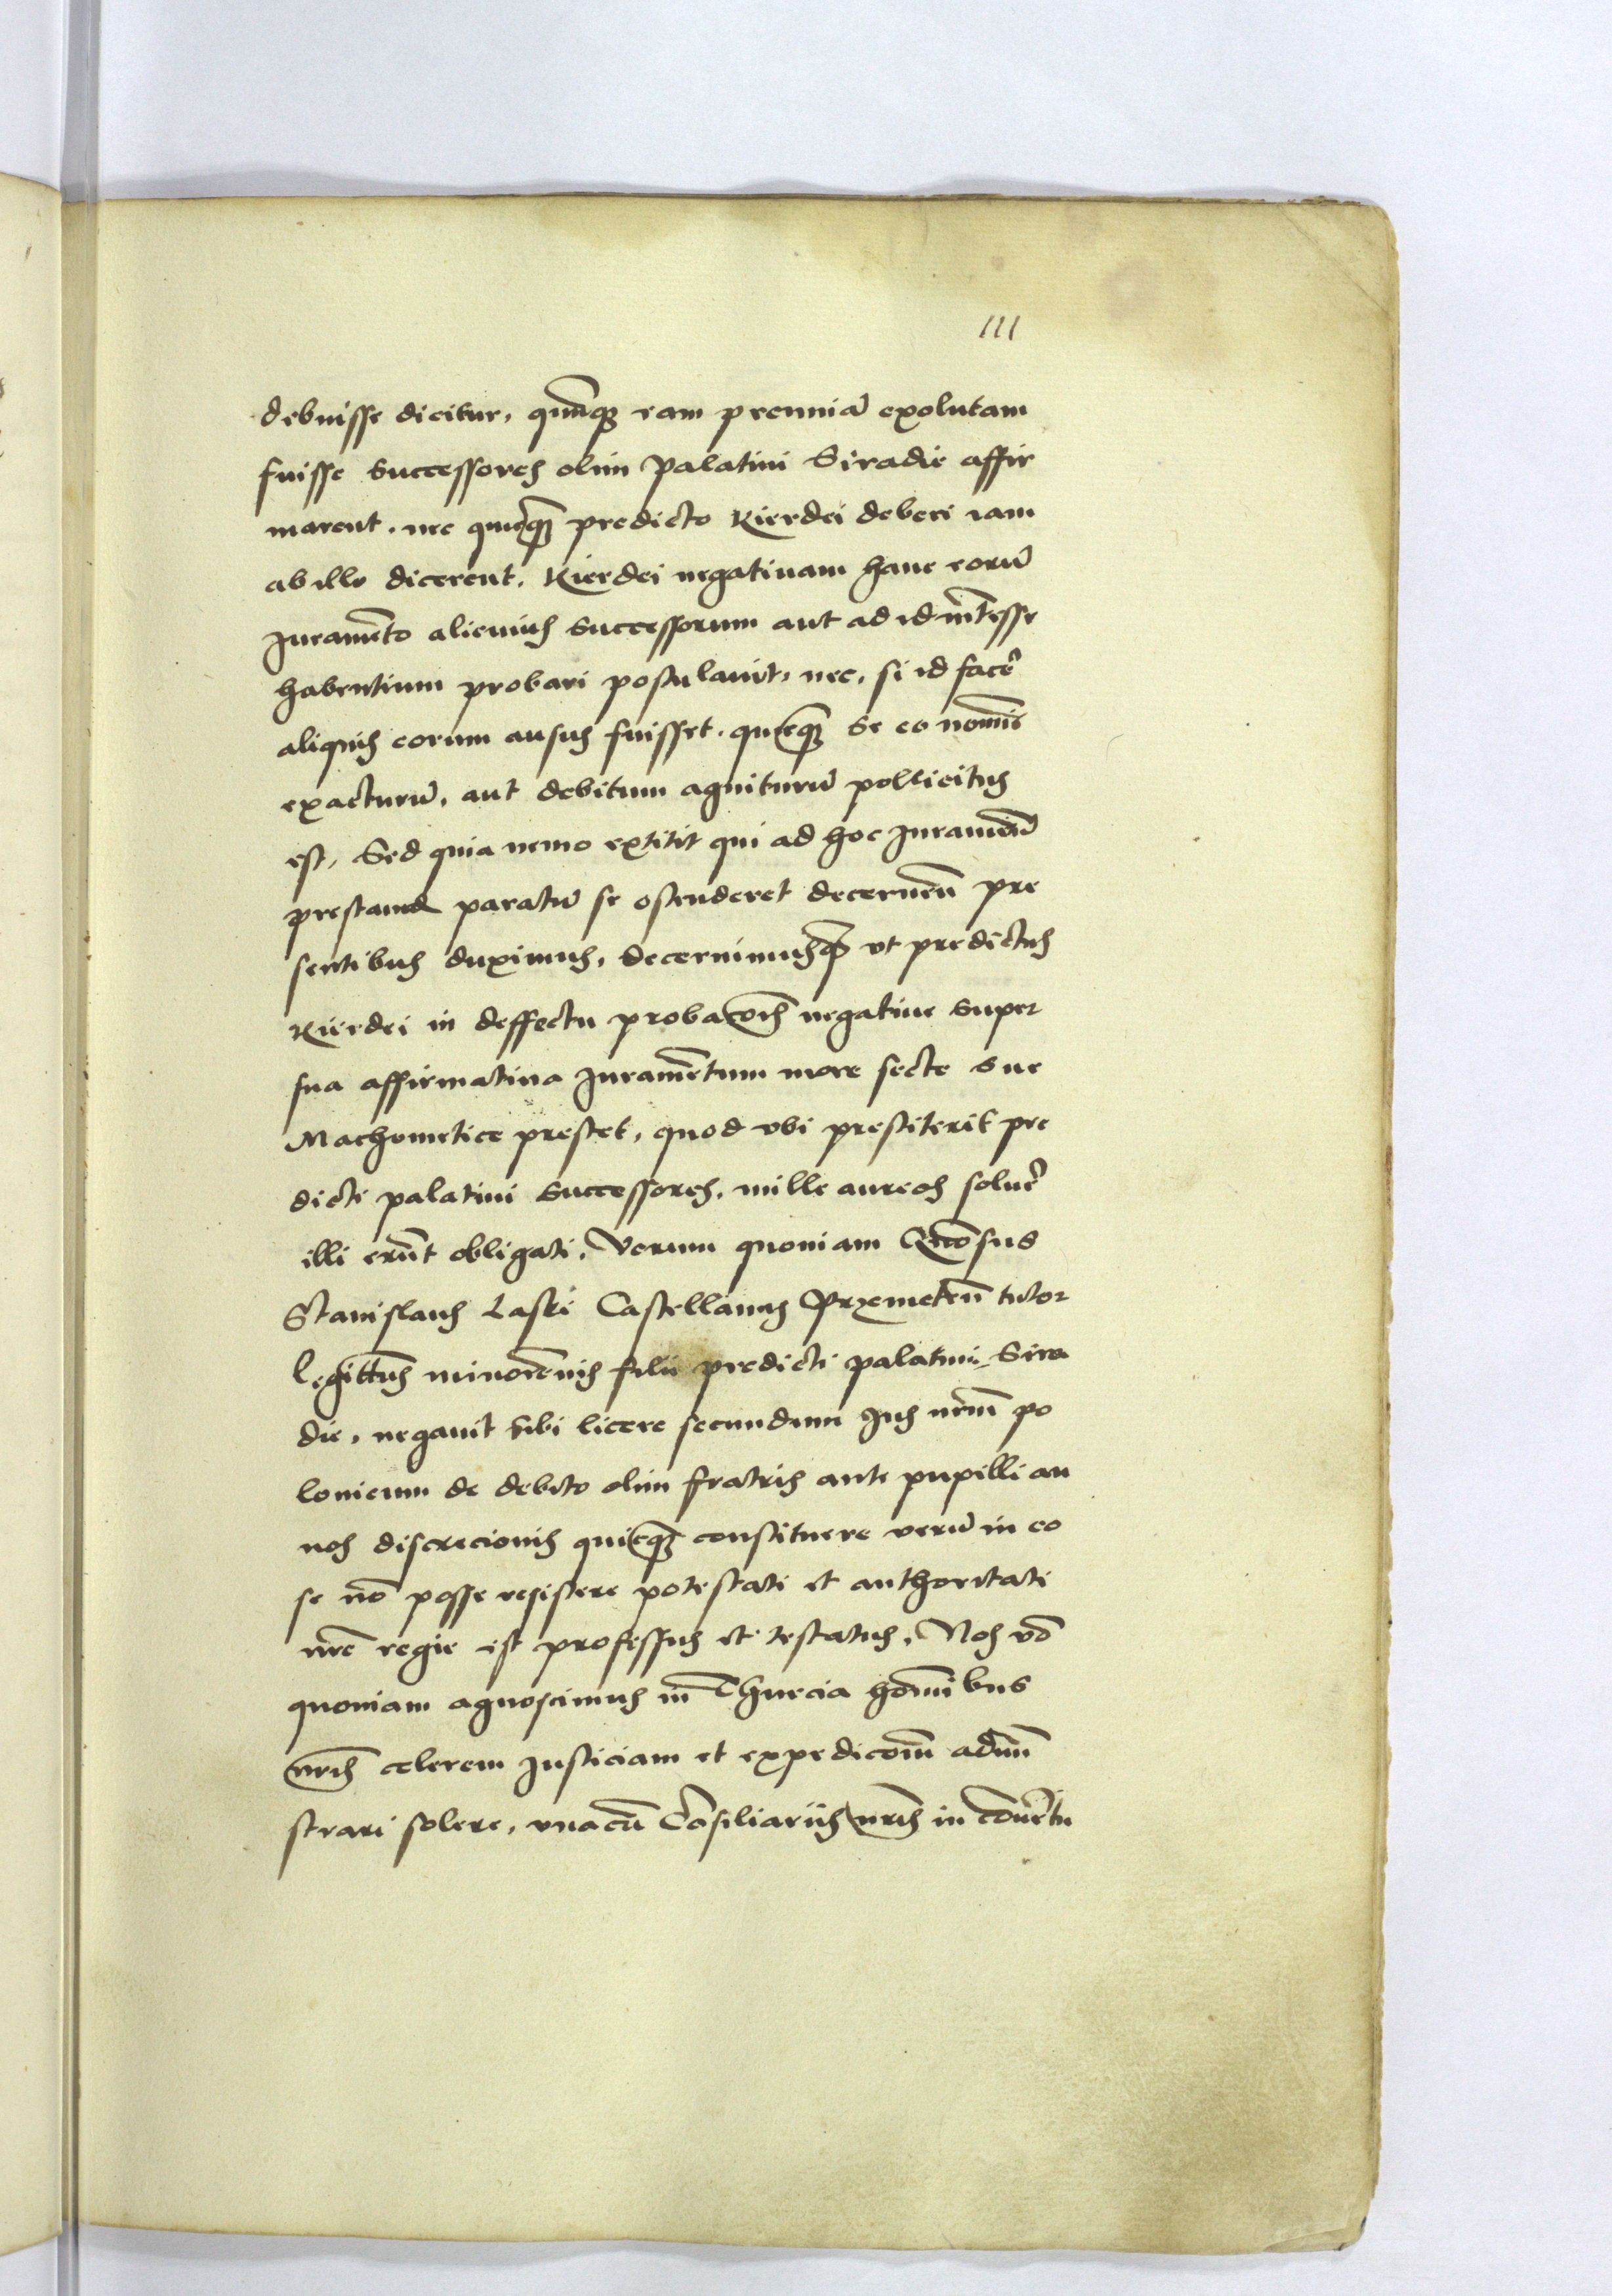 111
debuisse dicitur, qumq̃ eam pecuniã exolutam
fuisse Successores olim Palatini Siradie affir
marent. nec quicq̃ predicto Kierdei deberi iam
ab illo dicerent. Kierdei negatiuam hanc eorũ
Iuramẽto alicuius Successorum aut ad id intẽsse
habentium probari postulauit, nec, si id facẽ
aliquis eorum ausus fuisset. quicq̃ se eo nomĩe
exacturũ, aut debitum agniturũ pollicitus
est, Sed quia nemo extitit qui ad hoc Iuramentũ
prestand paratũ se ostenderet decernen̄ pre
sentibus duximus, decernimusq̃ vt predictus
Kierdei in deffectu probac̃oĩs negatiue super
sua affirmatiua Iuramẽtum more secte sue
Machometice prestet, quod vbi prestiterit pre
dicti palatini Successores, mille aureos soluẽ
illi erũt obligati, Verum quoniam Gn̄osus
Stanislaus Laski Castellanus Przemeten̄ tutor
legittĩs minorẽnis filii predicti palatini Sira
die, negauit sibi licere secundum Ius nr̃um po
lonicum de debito olim fratris ante pupilli an
nos discrecionis quicq̃ constituere verũ in eo
se nõ posse resistere potestati et authoritati
nr̃e regie est professus et testatus, Nos vo
quoniam agnoscimus in Thurcia homĩbus
nr̃is celerem Iusticiam et expedicõm admĩ
strari solere, vnacũ Cõsiliariis nr̃is in cõuẽtu